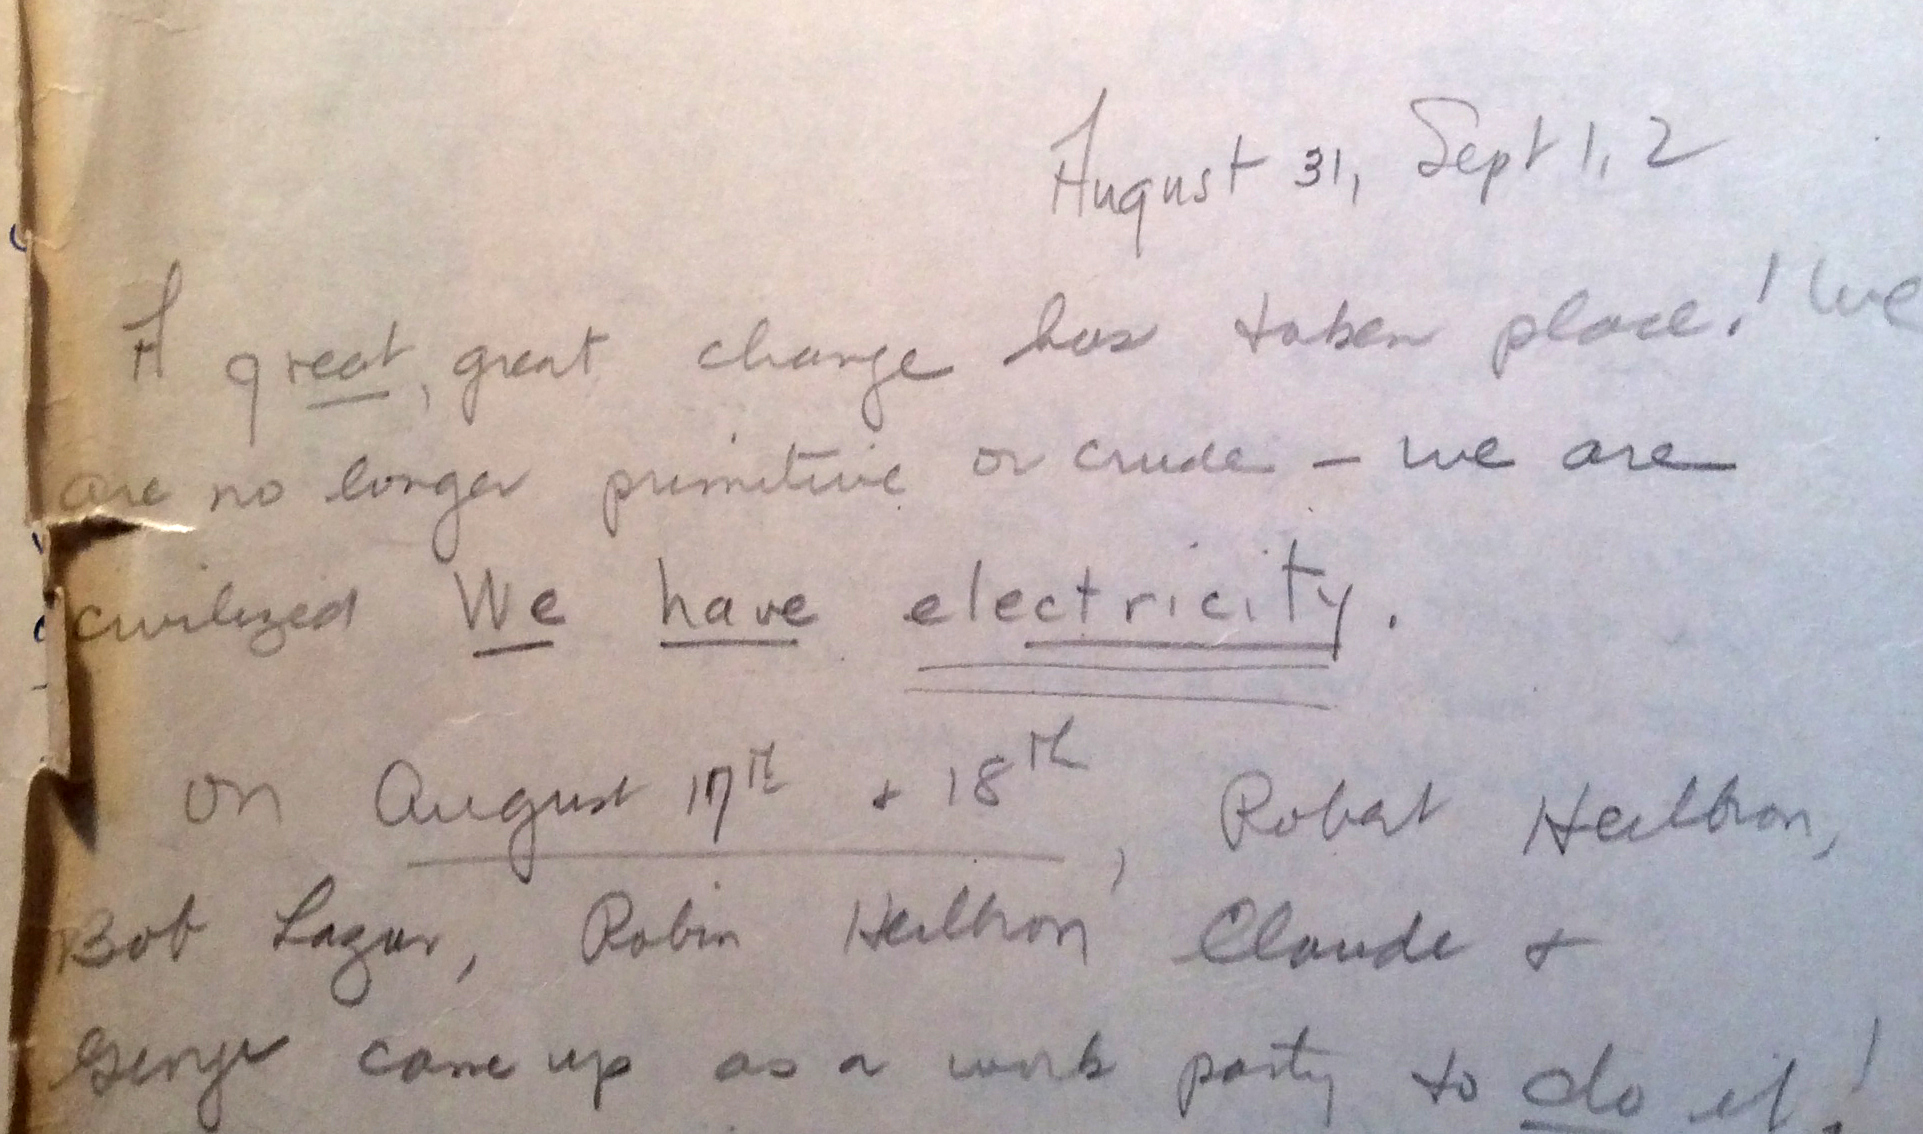 August 31, Sept 1, 2
A great, great change has taken place! We
are no longer primitive or crude – we are
civilized We have electricity.
On August 17th + 18th, Robert Heilbron,
Bob Lazar, Robin Heilbron Claude +
George came up as a work party to do it!